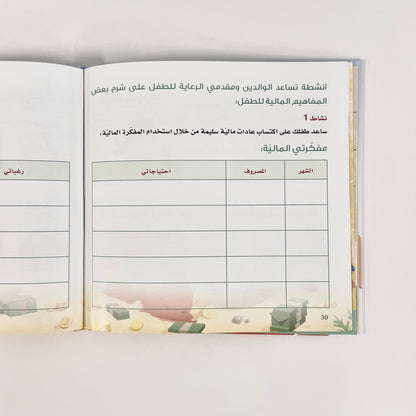 انشطة تساعد الوالدين ومقدمي الرعاية للطفل على شرح بعض
المفاهيم المالية للطفل:
نشاط 1
ساعد طفلك على اكتساب عادات ماليّة سليمة من خلال استخدام المفكّرة الماليّة.
مفكرتي الماليّة:
الشهر المصروف احتياجاتي رغباتي
30